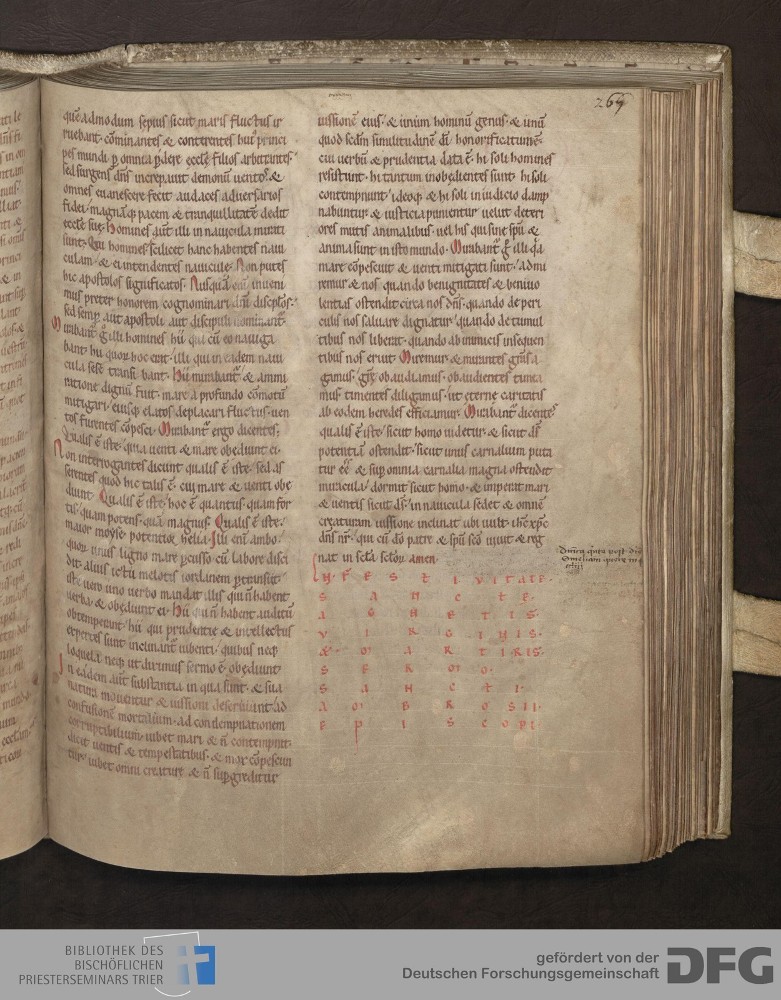 269
quēadmodum sepius sicut maris fluctus ir
ruebant. cōminantes & conterentes hui᷒ princi
pes mundi ꝑ omnia ꝑdere ęcclę filios arbitrantes.
sed surgens dn̄s increpauit demonū uento⁊. &
omnes euanescere fecit audaces aduersarios
fidei. magnāq; pacem & tranquillitatē dedit
ecclę suę. Homines aūt illi in nauicula mirati
sunt. Qui homines scilicet hanc habentes naui
culam. & ei intendentes nauiculę. Non putes
hic apostolos significatos. Nusquā eni inueni
mus preter honorem cognominari dn̄i discplos.
sed semp̄ aut apostoli aut discipuli nominant᷒.
Mirabant᷒ g̊ illi homines hii qui cū eo nauiga
bant. hii quor hoc erat. illi qui in eadem naui
cula sese transf bant. Hii mirabant᷒. & ammi
ratione dignū fuit. mare a profundo cōmotū
mitigari. eiusq; elatos deplacari fluctus. uen
tos furentes cōpesci. Mirabant᷒ ergo dicentes.
Qualis ē iste. quia uenti & mare obediunt ei.
Non interrogantes dicunt qualis ē iste. sed as
serentes quod hic talis ē. cui mare & uenti obe
diunt. Qualis ē iste. hoc ē quantus. quam for
tis. quam potens. quā magnus. Qualis ē iste.
maior moyse. potentior helia. Illi eni ambo.
quor unus ligno mare ꝑcusso cū labore disci
dit. alius ictū melotis iordanem ꝑtransiit.
iste uero uno uerbo mandat illis qui n̄ habent
uerba. & obediunt ei. Hii qui n̄ habent auditū
obtemperant. hii qui prudentię & intellectus
expertes sunt inclinant iubenti. quibus neq;
loquela neq; ut dirimus sermo ē. obediunt.
In eadem aūt substantia in qua sunt. & sua
natura mouentur & iussioni deseruiunt. ad
confusionē mortalium. ad condempnationem
corruptibilium. iubet mari & n̄ contempnit.
dicit uentis & tempestatibus. & mox cōpescun
tur. iubet omni creaturę. & n̄ suꝑgreditur
iussionē eius. & unum hominū genus. & unū
quod scdm similitudinē dī honorificatum ē.
cui uerbū & prudentia data ē. hi soli homines
resistunt. hi tantum inobedientes sunt. hi soli
contempnunt. ideoq; & hi soli in iudicio damp
nabuntur & iusticia punientur. uelut deteri
ores mutis animalibus. uel his qui sine spū &
anima sunt in isto mundo. Mirabant᷒ g̊ illi qa
mare cōpescuit & uenti mitigati sunt. admi
remur & nos quando benignitates & beniuo
lentias ostendit circa nos dn̄s. quando de peri
culis nos saluare dignatur. quando de tumul
tibus nos liberat. quando ab inimicis insequen
tibus nos eruit. Miremur. & mirantes grās a
gamus. grās obaudiamus. obaudientes timea
mus. timentes diligamus. ut eternę caritatis
ab eodem heredes efficiamur. Mirabant᷒ dicentes
qualis ē iste. sicut homo uidetur. & sicut ds̄
potentiā ostendit. sicut unus carnalium puta
tur eē. & sup̄ omnia carnalia magna ostendit
miracula. dormit sicut homo. & imperat mari
& uentis sicut ds̄. in nauicula sedet & omnē
creaturam iussione inclinat ubi uult. ihc xp̄c
dn̄s nr̄. qui cū dō patre & spū scō uiuit & reg
nat in scl̄a sclōr. amen.
Dnica q̄nta post
IN FESTIVITATE.
SANCTĘ.
AGNETIS.
VIRGINIS.
& MARTIRIS.
SERMO.
SANCTI.
AMBROSII.
EPISCOPI
BIBLIOTHEK DES
BISCHÖFLICHEN
PRIESTERSEMINARS TRIER
gefördert von der
Deutschen Forschungsgemeinschaft
DFG